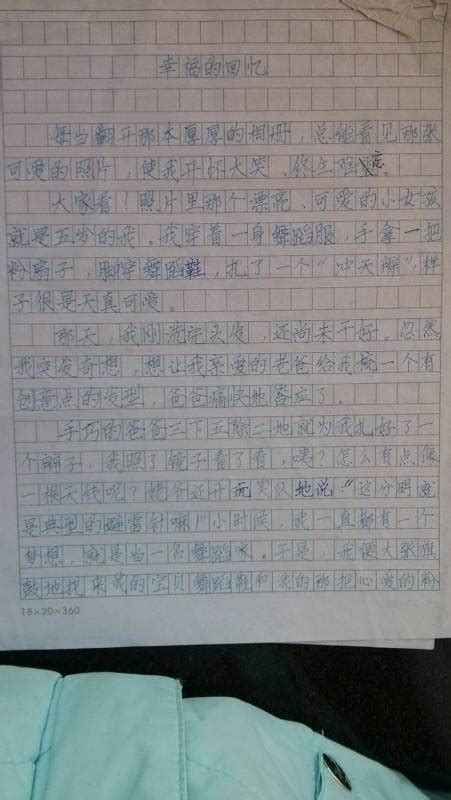 幸福的回忆
每当翻开那本厚厚的相册，总能看见那张
可爱的照片，使我开怀大笑、终生难忘。
大家看！照片里那个漂亮、可爱的小女孩
就是五岁的我。我穿着一身舞蹈服，手拿一把
粉扇子，脚穿舞蹈鞋，扎了一个“冲天辫”，样
子很是天真可爱。
那天，我刚洗完头发，还尚未干好。忽然
我突发奇想，想让我亲爱的老爸给我梳一个有
创意点的发型，爸爸痛快地答应了。
手巧的爸爸三下五除二地就为我扎好了一
个辫子，我照了镜子看了看，咦？怎么有点像
一根天线呢？姥爷还开玩笑似地说：“这分明就
是典型的避雷针嘛！”小时候，我一直都有一个
梦想，就是当一名舞蹈家。于是，我便大张旗
鼓地找来我的宝贝舞蹈鞋和我的那把心爱的粉
18×20=360